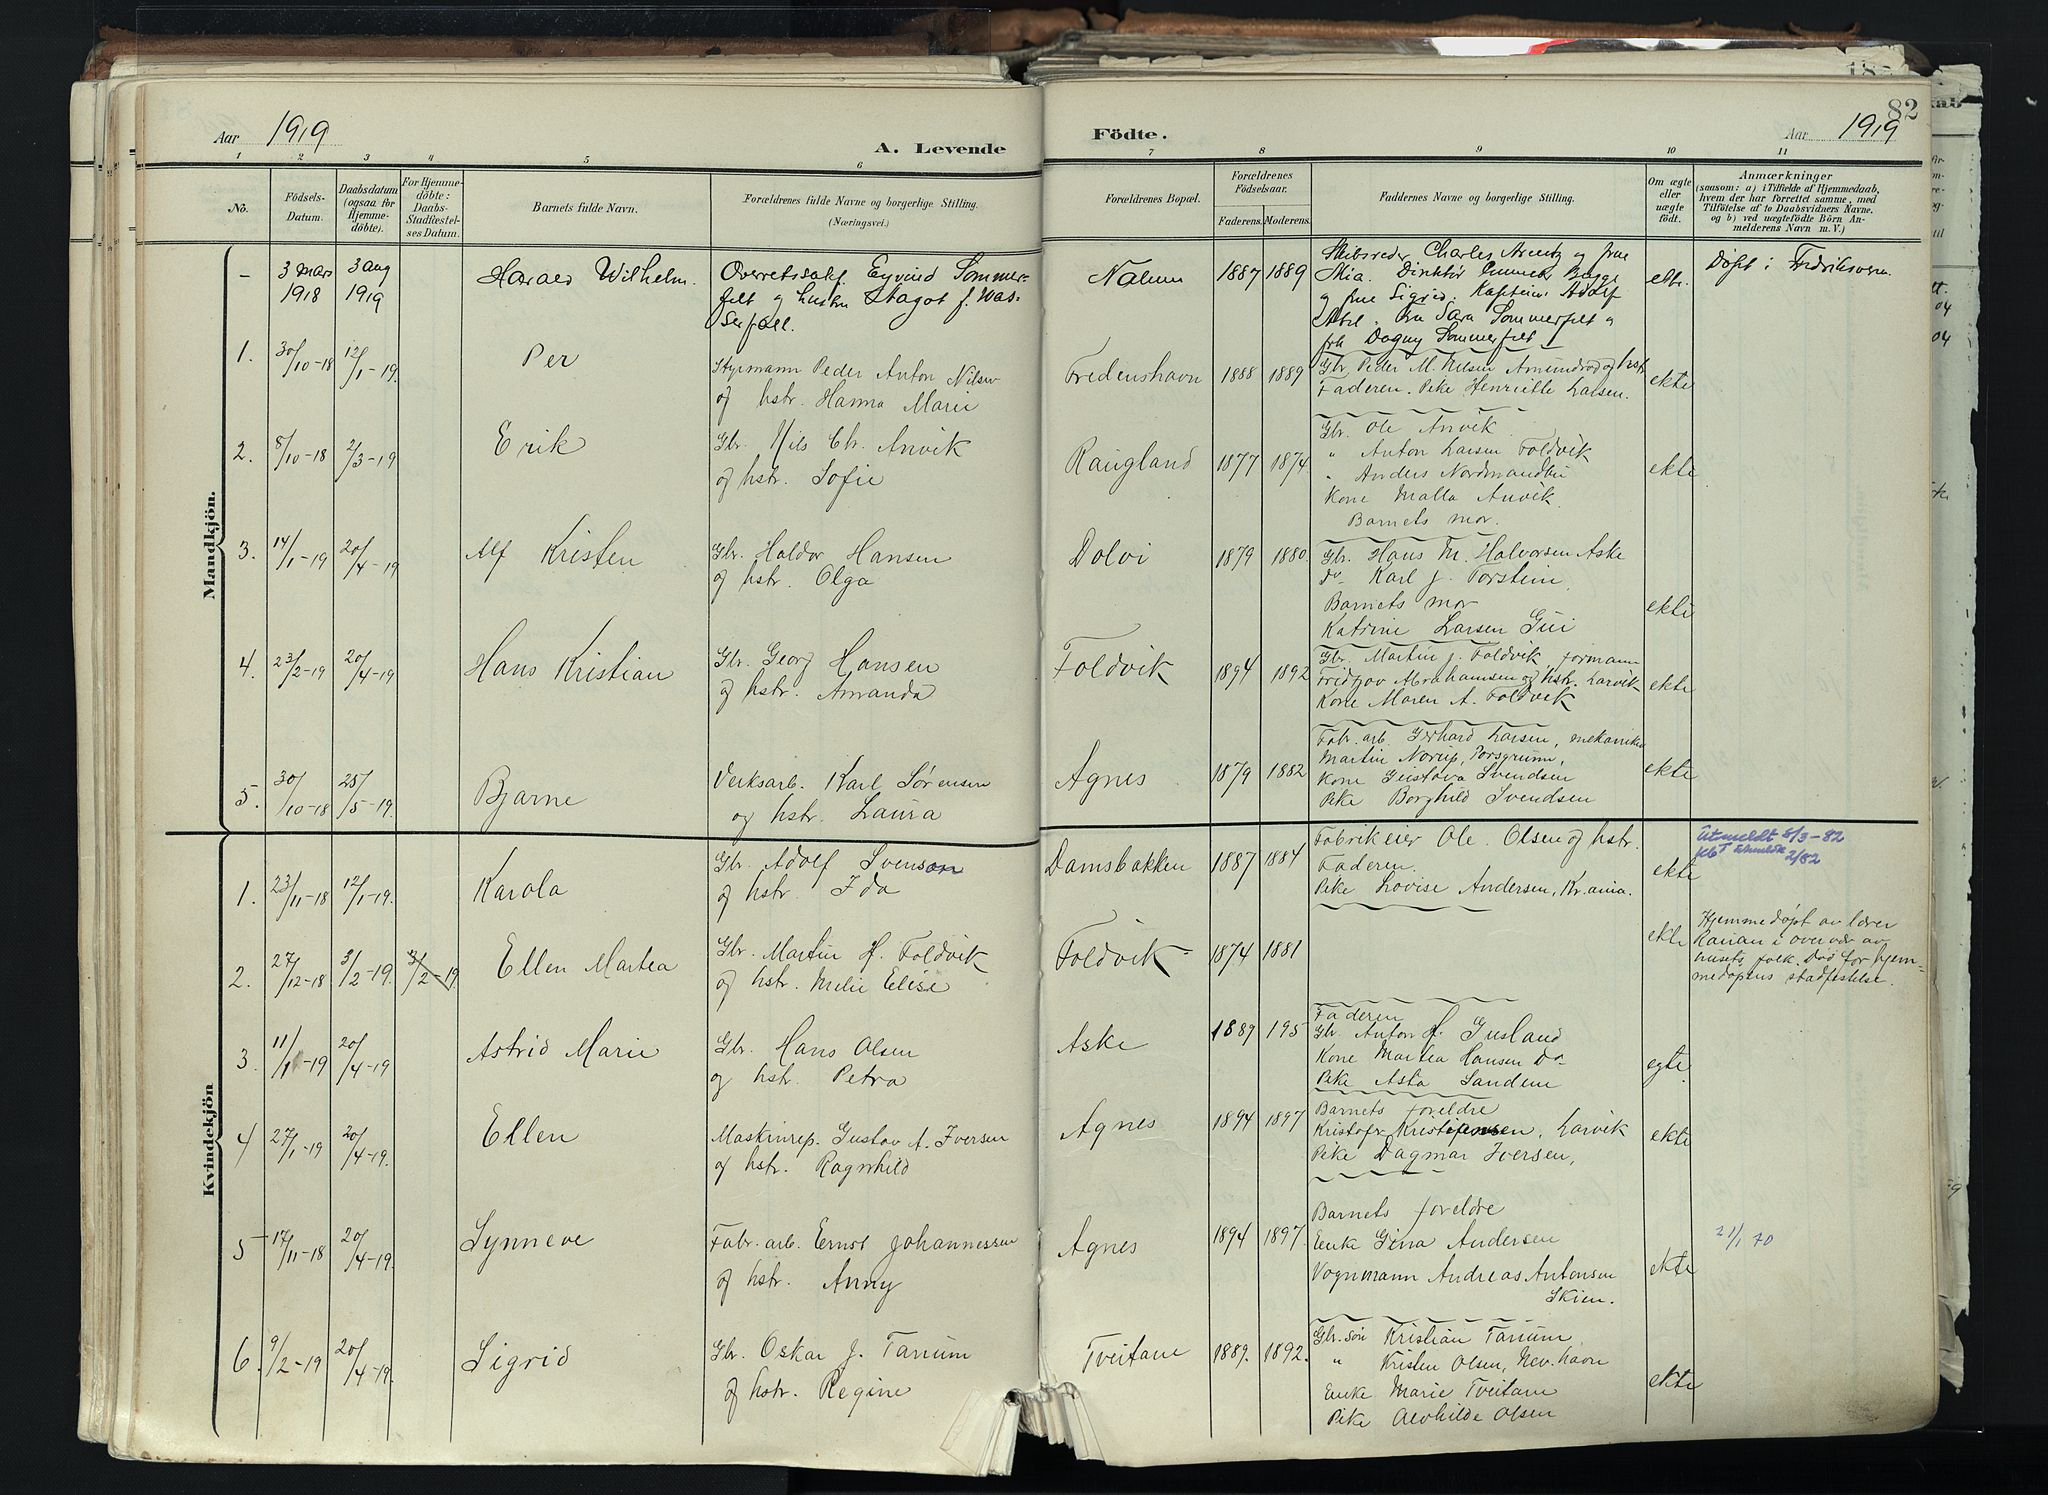 Aar 1919
A. Levende
Födte.
82
Aar 1919
1 2 3 4 5 6 7 8 9 10 11
No.
Födsels-
Datum.
Daabsdatum
(ogsaa for
Hjemme-
döbte).
For Hjemme-
döbte:
Daabs-
Stadfestel-
ses Datum.
Barnets fulde Navn.
Forældrenes fulde Navne og borgerlige Stilling.
(Næringsvei.)
Forældrenes Bopæl.
Forældrenes
Födselsaar.
Faderens. Moderens.
Faddernes Navne og borgerlige Stilling.
Om ægte
eller
uægte
födt.
Anmærkninger
(saasom: a) i Tilfælde af Hjemmedaab,
hvem der har forrettet samme, med
Tilföielse af to Daabsvidners Navne.
og b) ved uægtefödte Börn An-
melderens Navn m. V.)
Mandkjön.
- 3 mars 1918 3 aug 1919 Harald Wilhelm. Overretssakf. Eyvind Sommer-
felt og hustru Magot f. Was-
serfall.
Nalum 1887 1889
Skibsreder Charles Arentz og frue
Mia. Direktör Bugge
og frue Sigrid. Kaptein Adolf
Abel. Fru Sara Sommerfelt og
frk Dagny Sommerfelt
ektr. Döpt i Fredriksvern
1. 30/10-18 12/1-19. Per Styrmann Peder Anton Nilsen
og hstr. Hanna Marie
Fredenshavn 1888 1889
Gbr. Peder M. Nilsen Amundrød og hstr
Faderen. Pike Henriette Larsen.
ekte
2. 8/10-18 2/3-19 Erik Gbr. Nils Chr. Anvik
og hstr. Sofie
Raugland 1877 1874
Gbr. Ole Anvik
" Anton Larsen Foldvik
" Anders Nordmandbu
Kone Malla Anvik.
Barnets mor.
ekte
3. 14/1-19 20/4-19 Alf Kristen Gbr. Haldor Hansen
og hstr. Olga
Dolvi 1879 1880.
Gbr. Hans M. Halvorsen Aske
Do Karl J. Torstein
Barnets mor
Katrine Larsen Gui
ekte
4. 23/2-19 20/4-19 Hans Kristian Gbr. Georg Hansen
og hstr. Amanda
Foldvik 1894 1892
Gbr. Martin J. Foldvik, formann
Fridtjov Abrahamsen og hstr. Larvik
Kone Maren A. Foldvik
ekte
5. 30/10-18 25/5-19. Bjarne Verksarb. Karl Sørensen
og hstr. Laura
Agnes 1879 1882
Fabr. arb. Gerhard Larsen, mekaniker
Martin Norup, Porsgrunn,
Kone Gustava Svendsen
Pike Borghild Svendsen
ekte
Kvindekjön
1. 23/11-18 12/1-19. Karola Gbr. Adolf Svenson
og hstr. Ida
Damsbakken 1887 1884
Fabrikeier Ole Olsen og hstr.
Faderen.
Pike Lovise Andersen, Kr.ania.
ekte
Utmeldt 8/3-82
2/82
2. 27/12-18 3/2-19. 3/2-19 Ellen Martea Gbr. Martin H. Foldvik
og hstr. Milie Elise
Foldvik 1874 1881
ekte
Hjemmedøpt av lærer
Ranan i overvær av
husets folk. Død før hjem-
medåpens stadfestelse.
3. 11/1-19 20/4-19 Astrid Marie Gbr. Hans Olsen
og hstr. Petra
Aske 1889 195
Faderen
Gbr. Anton H. Gusland
Kone Martea Hansen Do
Pike Asta Sandem
egte.
4 27/1-19 20/4-19. Ellen Maskinrep. Gustav A. Iversen
og hstr. Ragnhild
Agnes 1894 1897
Barnets foreldre
Kristofer Kristiansen, Larvik
Pike Dagmar Iversen,
ekte
5 17/11-18 20/4-19. Synneve Fabr. arb. Ernst Johannessen
og hstr. Anny
Agnes 1894 1897.
Barnets foreldre
Enke Gina Andersen
Vognmann Andreas Antonsen
Skien.
ekte
21/1 70
6. 9/2-19 20/4-19. Sigrid Gbr. Oskar J. Tanum
og hstr. Regine
Tveitane 1889. 1892.
Gbr. søn Kristian Tanum
" Kristen Olsen, Nevlhavn
Enke Marie Tveitane
Pike Alvhilde Olsen
ekte